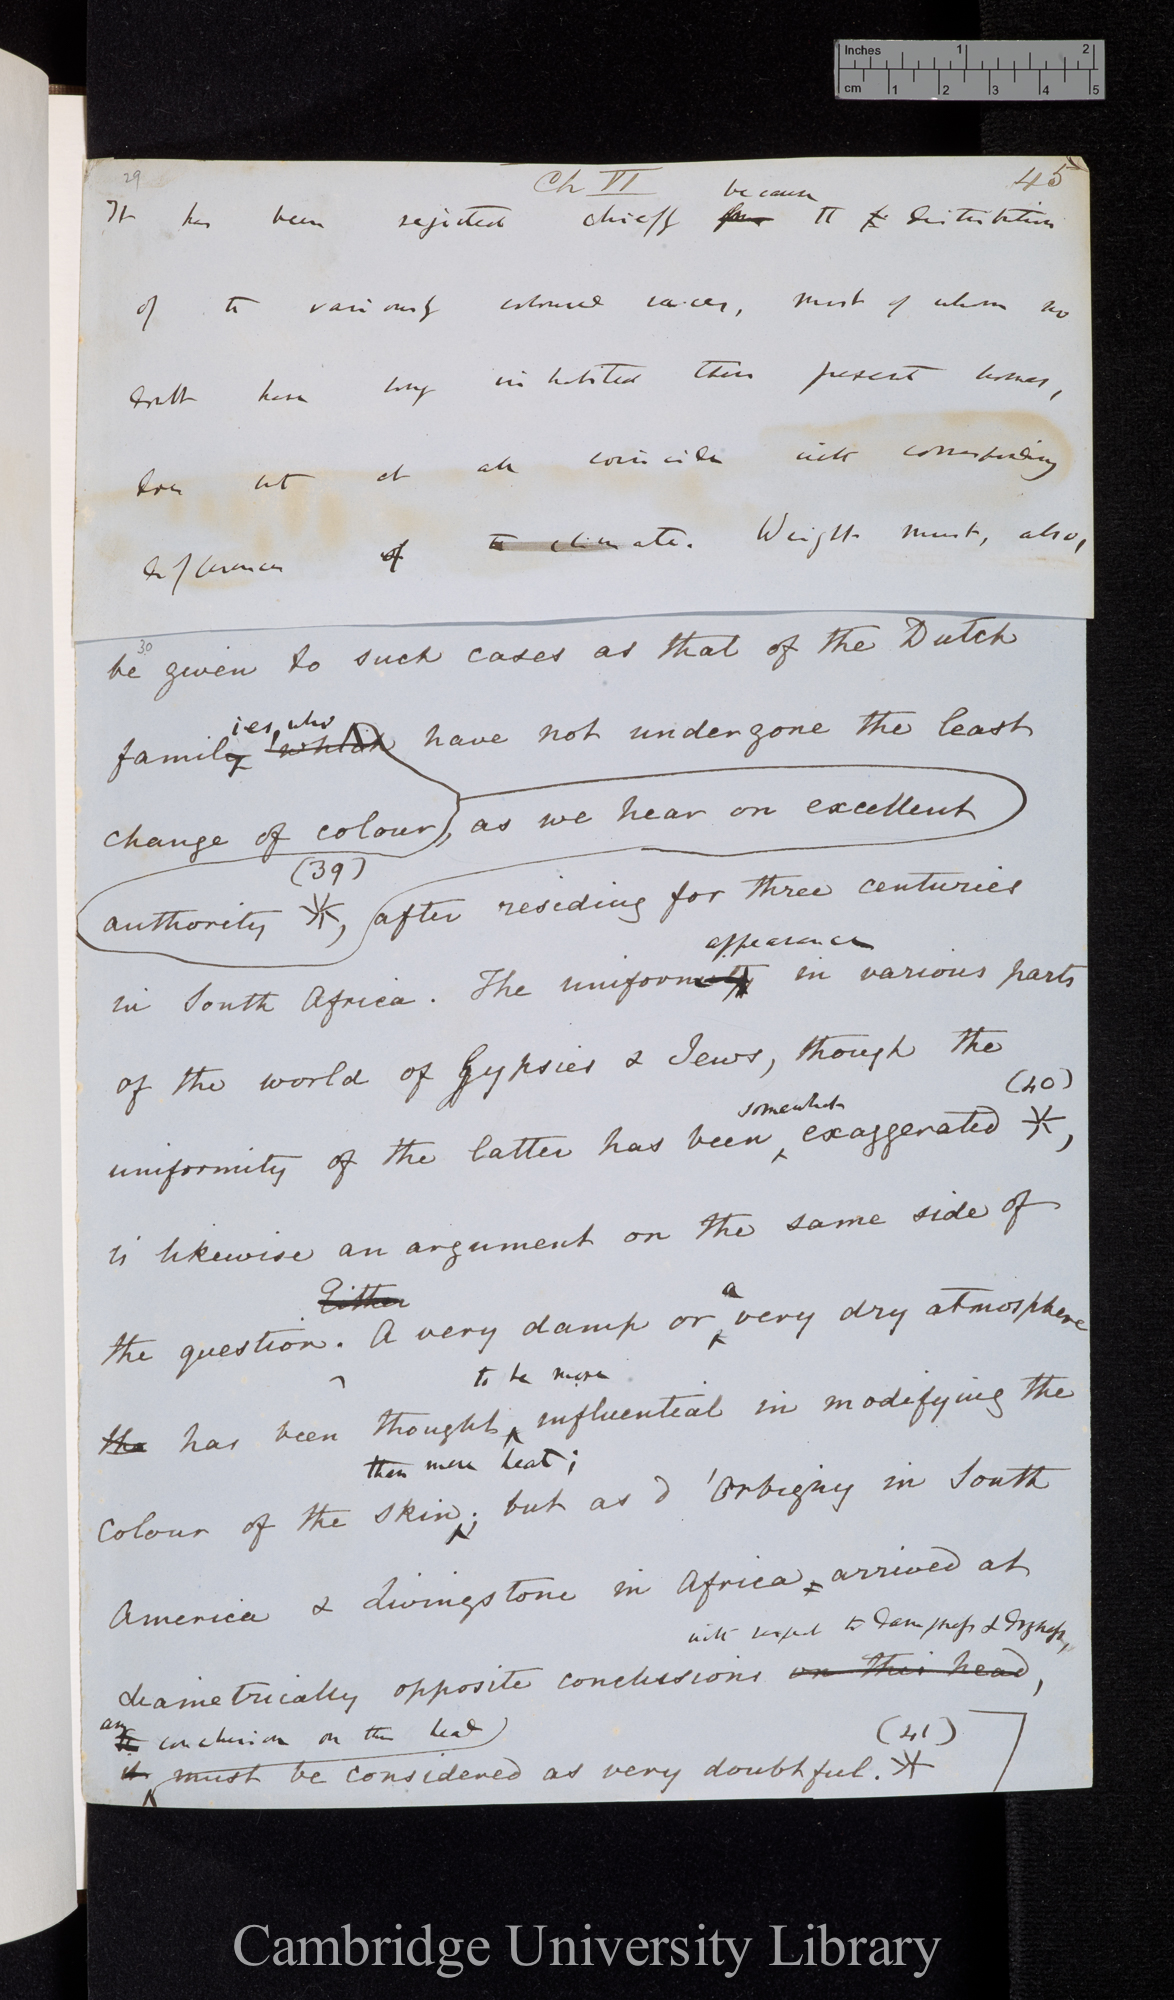 Inches 1 2
cm 1 2 3 4 5
29 Ch VI 45
because
It has been rejected chiefly from tt the distribution
of the variously coloured races, most of whom no
doubt have long inhabited their present homes,
does not at all coincide with corresponding
differences of the climate. Weight must, also,
30
be given to such cases as that of the Dutch
ies, who
family which have not undergone the least
change of colour, as we hear on excellent
(39)
authority *, after residing for three centuries
appearance
in South Africa. The uniformity in various parts
of the world of Gypsies & Jews, though the
somewhat (40)
uniformity of the latter has been exaggerated *,
is likewise an argument on the same side of
Either a
the question. A very damp or very dry atmosphere
to be more
the has been thought influential in modifying the
than mere heat;
colour of the skin; but as d'Orbigny in South
America & Livingstone in Africa, arrived at
with respect to dampness & dryness,
diametrically opposite conclusions on this head,
any conclusion on this head (41)
it must be considered as very doubtful. *
Cambridge University Library